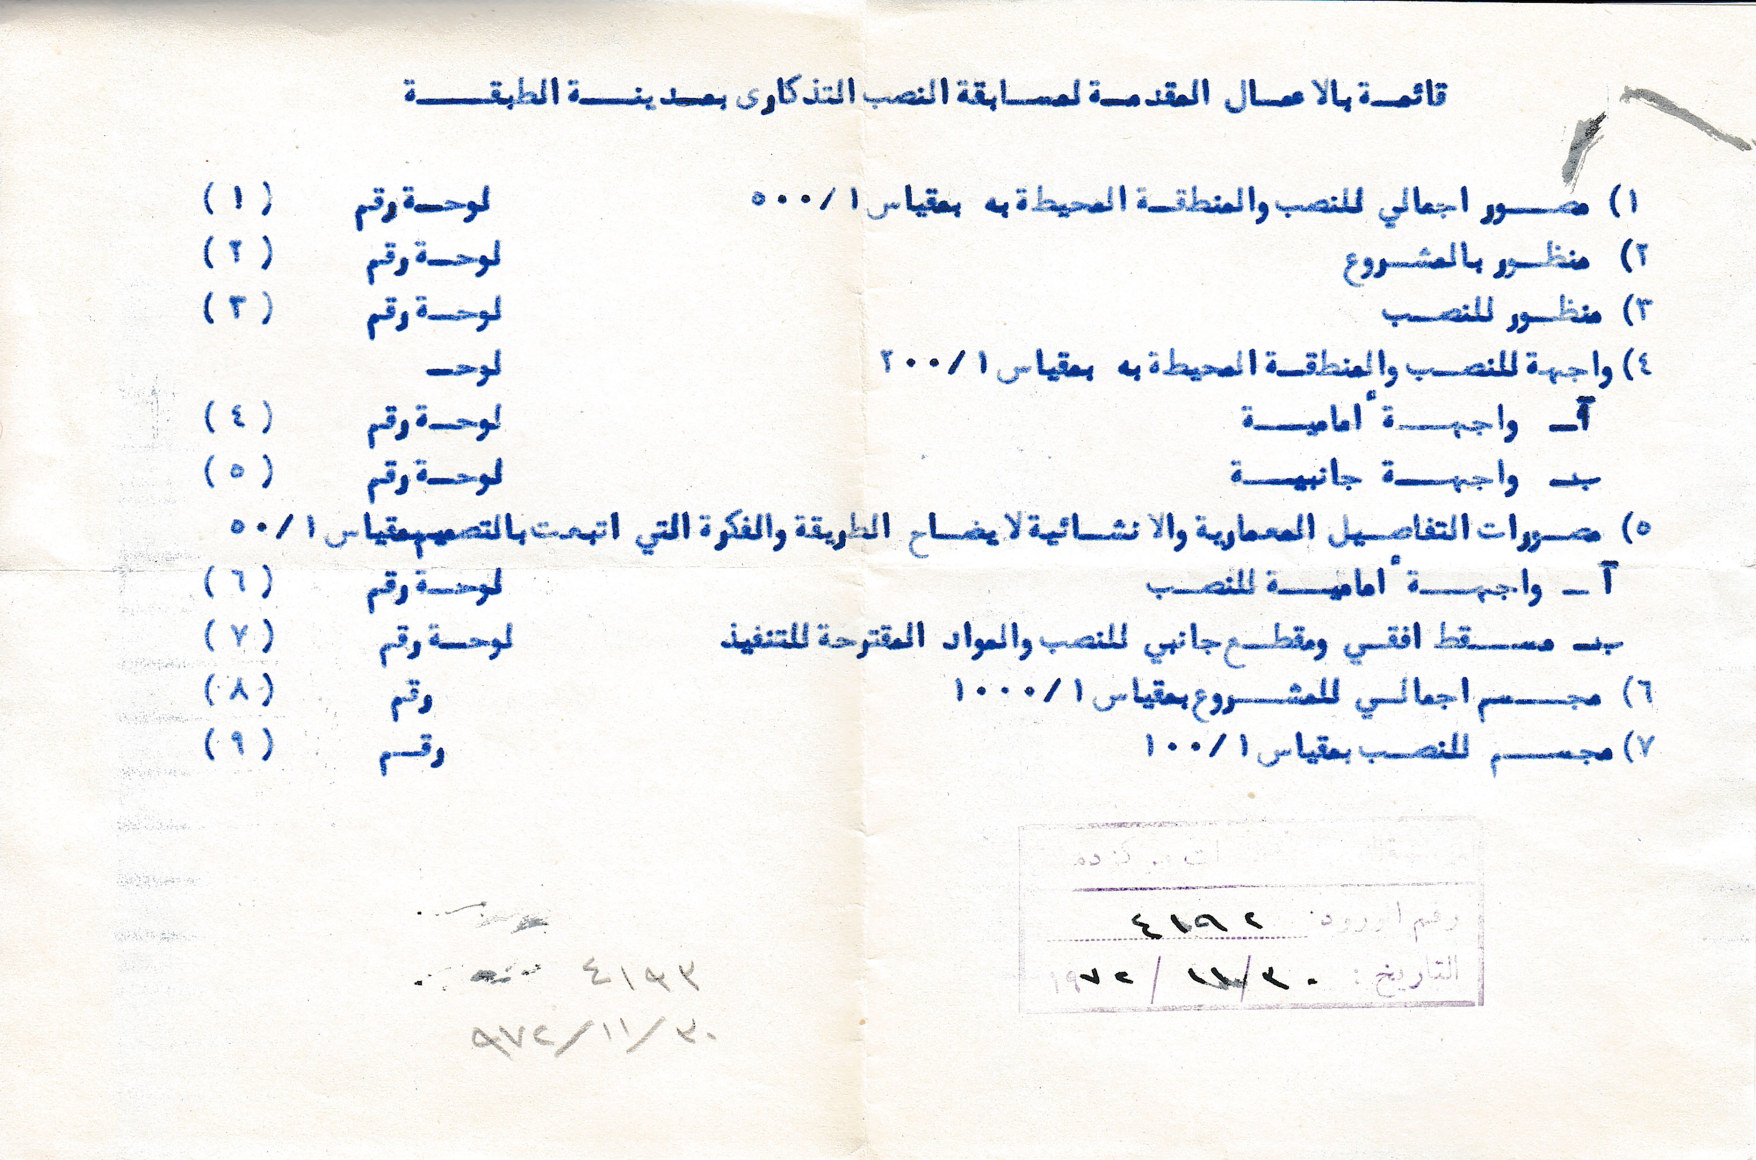 قائمة بالاعمال المقدمة لمسابقة النصب التذكارى بمدينة الطبقة
١) مصور اجمالي للنصب والمنطقة المحيطة به بمقياس ١/٥٠٠ لوحة رقم (١)
٢) منظور بالمشروع لوحة رقم (٢)
٣) منظور للنصب لوحة رقم (٣)
٤) واجهة للنصب والمنطقة المحيطة به بمقياس ١/٢٠٠ لوحـ
آ ـ واجهة أمامية لوحة رقم (٤)
بـ واجهة جانبية لوحة رقم (٥)
٥) مصورات التفاصيل المعمارية والانشائية لايضاح الطريقة والفكرة التي اتبعت بالتصميم بمقياس ١/٥٠
آ ـ واجهة أمامية للنصب لوحة رقم (٦)
بـ مسقط افقي ومقطع جانبي للنصب والمواد المقترحة للتنفيذ لوحة رقم (٧)
٦) مجسم اجمالي للمشروع بمقياس ١/١٠٠٠ رقم (٨)
٧) مجسم للنصب بمقياس ١/١٠٠ رقم (٩)
رقم الورود: ٤١٩٢
التاريخ: ٣٠/١١/١٩٧٢
٤١٩٣
٣٠/١١/٩٧٢